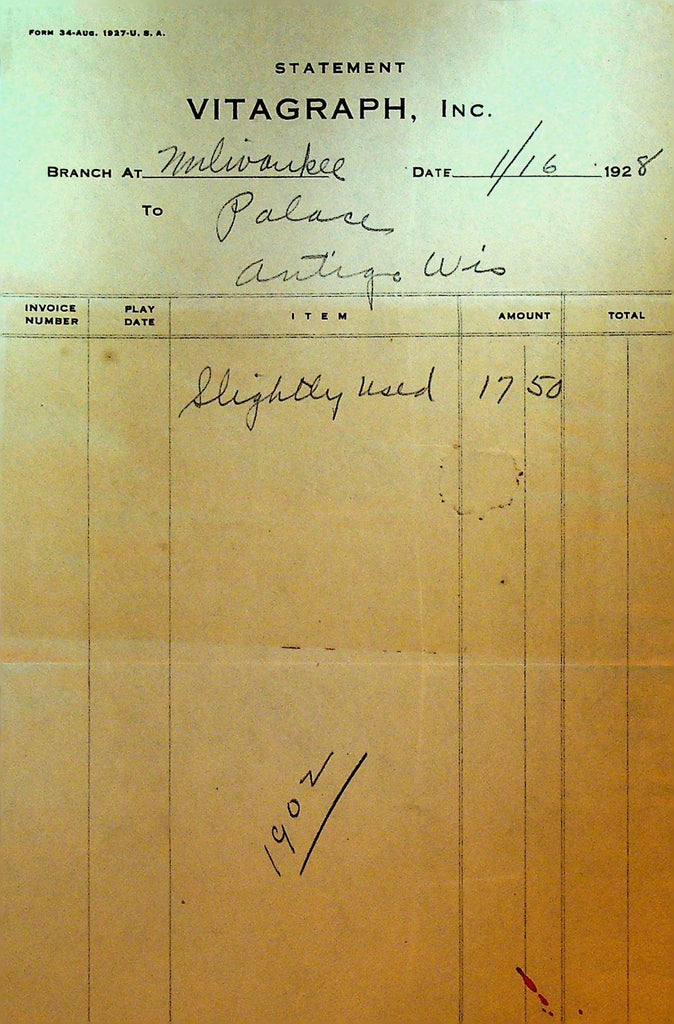 FORM 34-AUG. 1927-U. S. A.
STATEMENT
VITAGRAPH, INC.
BRANCH AT Milwaukee DATE 1/16 1928
TO Palace
Antigo Wis
INVOICE NUMBER PLAY DATE ITEM AMOUNT TOTAL
Slightly Used 17 50
1902